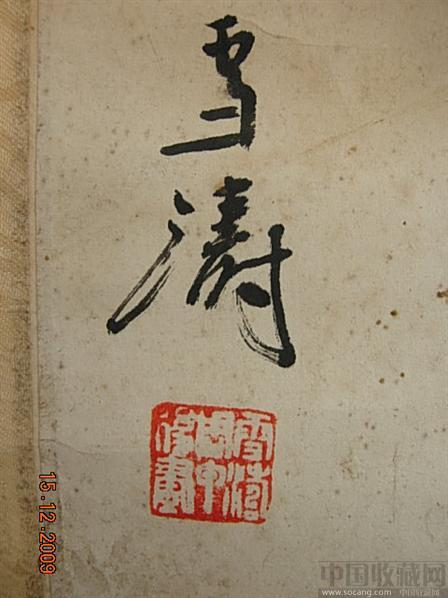 雪
濤
雪濤
周甲
後畫
15.12.2009
中国收藏网
www.socang.com 中国收藏网